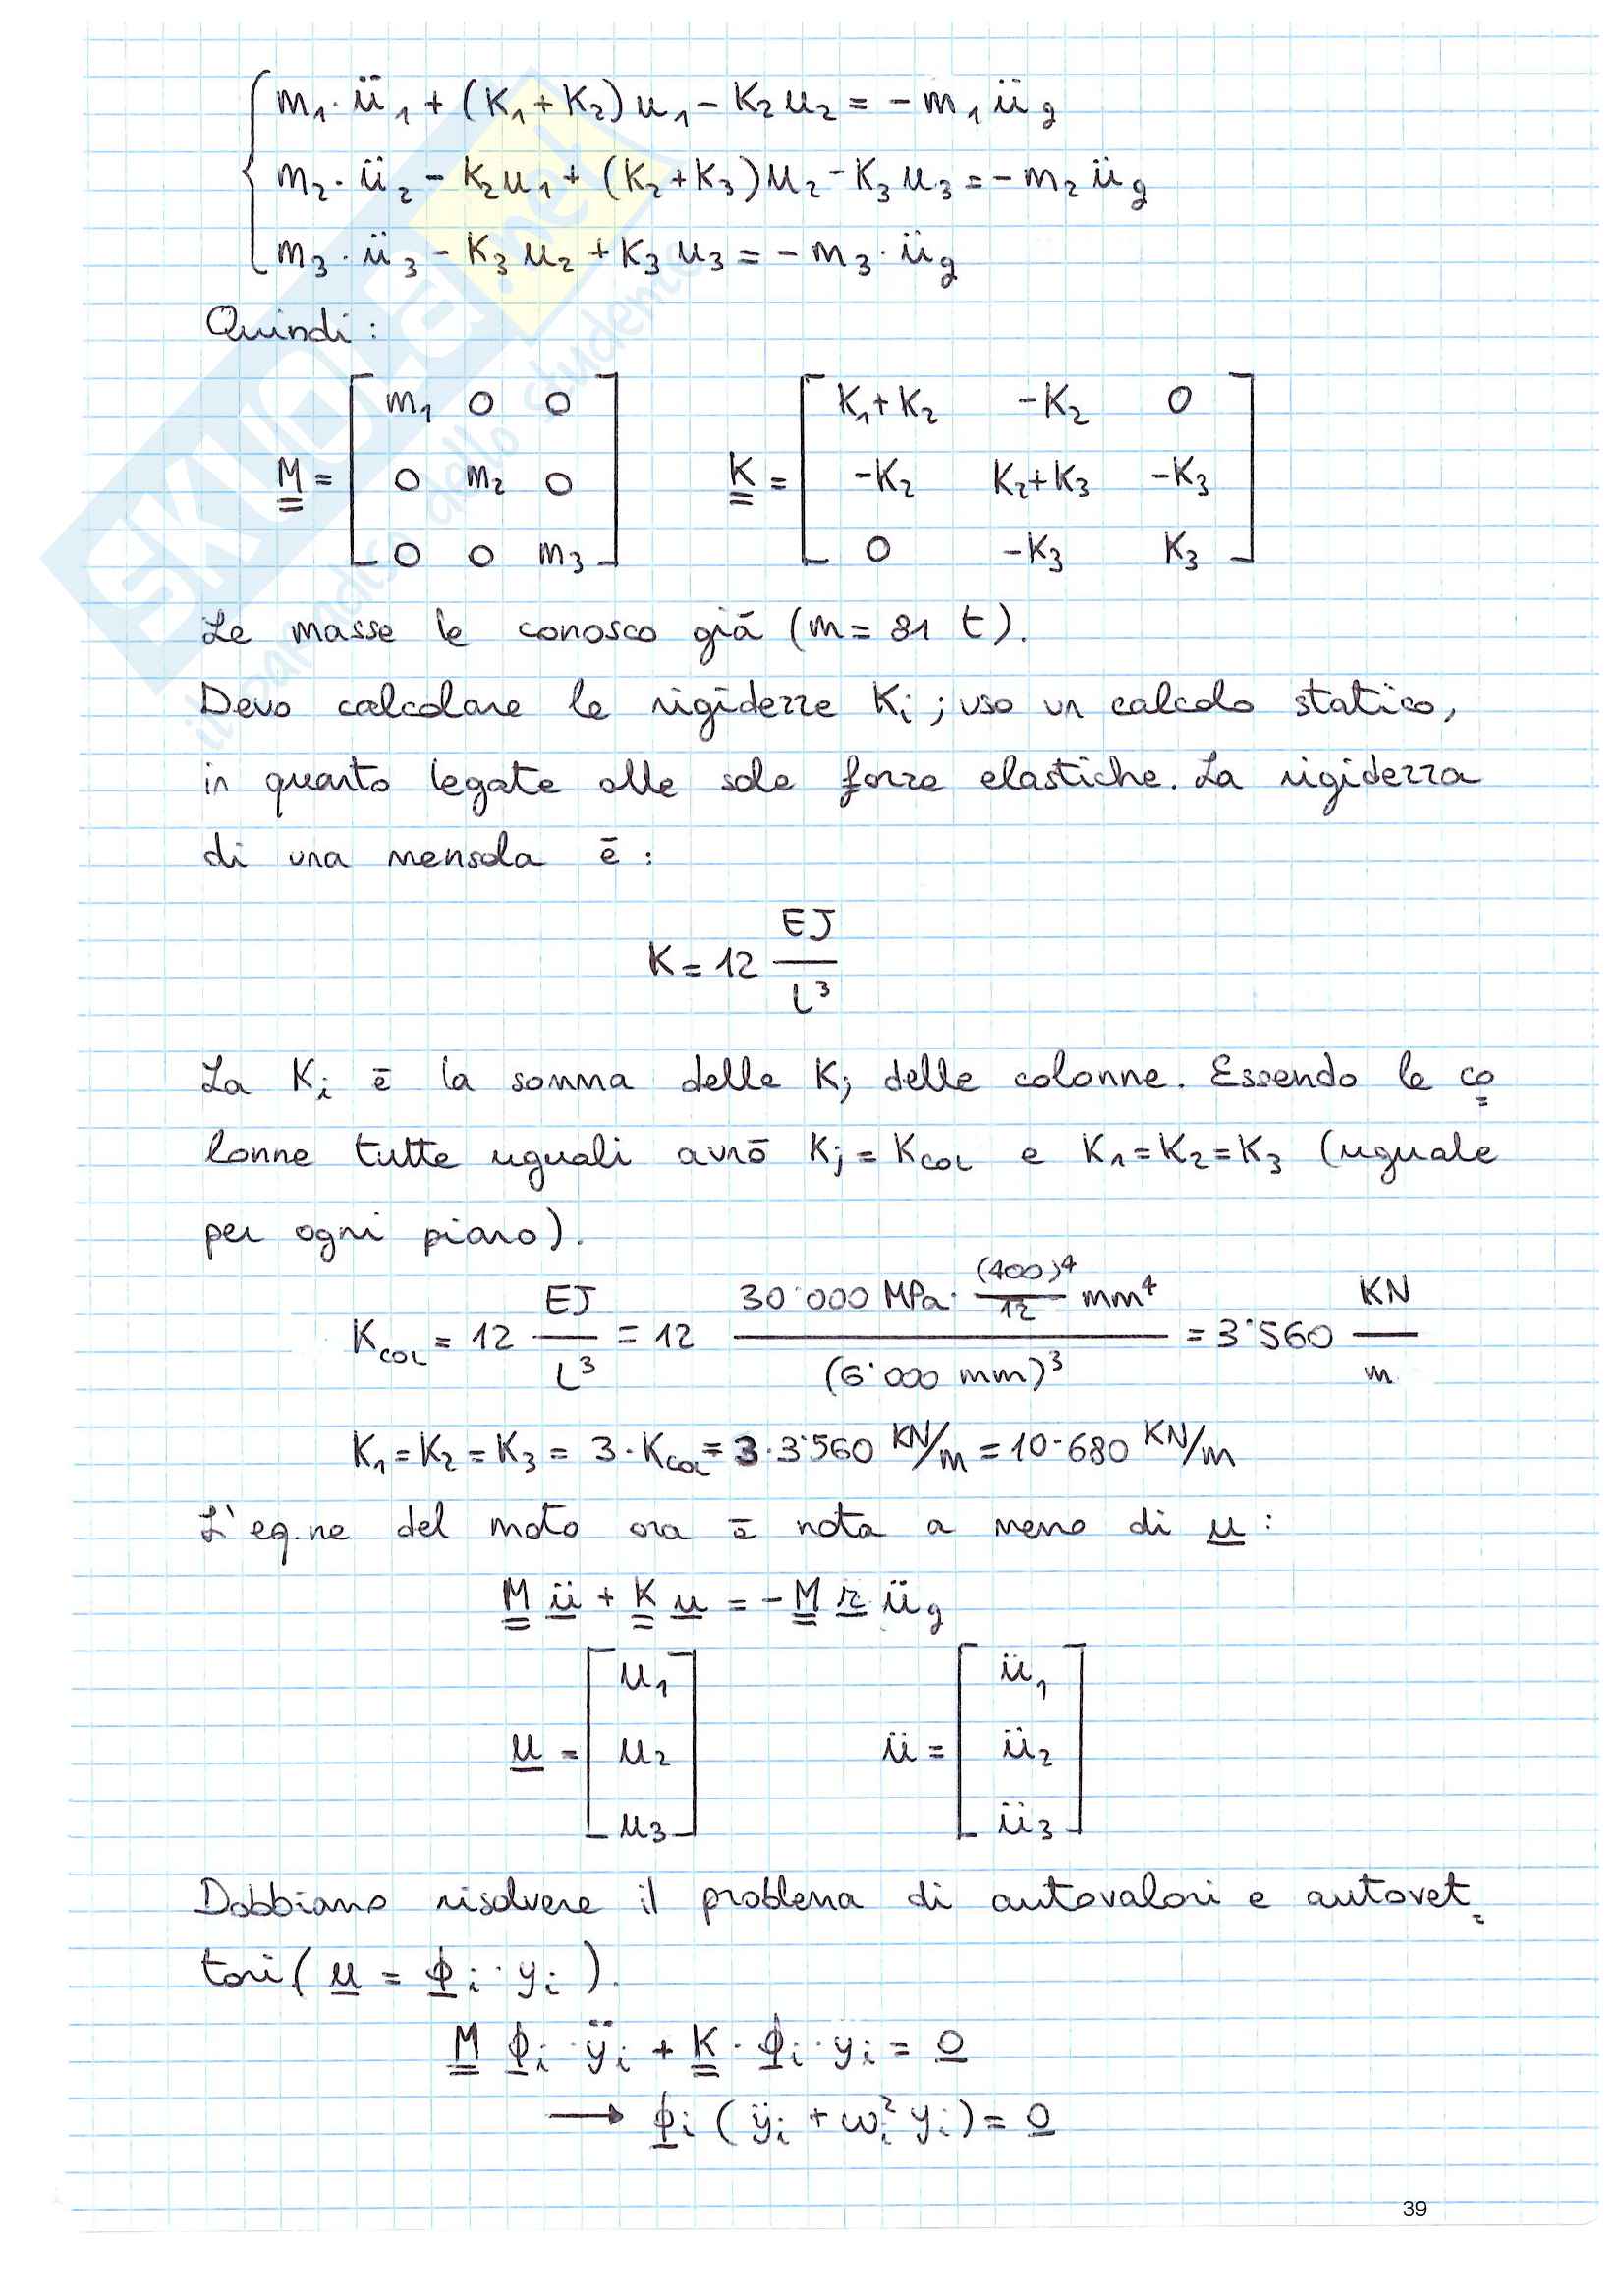 m₁·ü₁ + (K₁+K₂)u₁ - K₂u₂ = - m₁ü_g
m₂·ü₂ - K₂u₁ + (K₂+K₃)u₂ - K₃u₃ = - m₂ü_g
m₃·ü₃ - K₃u₂ + K₃u₃ = - m₃·ü_g
Quindi:
M = [ m₁ 0 0 ; 0 m₂ 0 ; 0 0 m₃ ] K = [ K₁+K₂ -K₂ 0 ; -K₂ K₂+K₃ -K₃ ; 0 -K₃ K₃ ]
Le masse le conosco già (m = 81 t).
Devo calcolare le rigidezze Ki; uso un calcolo statico,
in quanto legate alle sole forze elastiche. La rigidezza
di una mensola è:
K = 12 EJ/L³
La Ki è la somma delle Kj delle colonne. Essendo le co=
lonne tutte uguali avrò Kj = Kcol e K₁=K₂=K₃ (uguale
per ogni piano).
Kcol = 12 EJ/L³ = 12 (30'000 MPa·(400)⁴/12 mm⁴)/(6'000 mm)³ = 3'560 KN/m
K₁ = K₂ = K₃ = 3·Kcol = 3·3'560 KN/m = 10'680 KN/m
L'eq.ne del moto ora è nota a meno di u:
M ü + K u = - M r ü_g
u = [ u₁ ; u₂ ; u₃ ] ü = [ ü₁ ; ü₂ ; ü₃ ]
Dobbiamo risolvere il problema di autovalori e autovet=
tori (u = ϕi·yi).
M ϕi·ÿi + K·ϕi·yi = 0
→ ϕi (ÿi + ωi² yi) = 0
39
SKUOLA.net